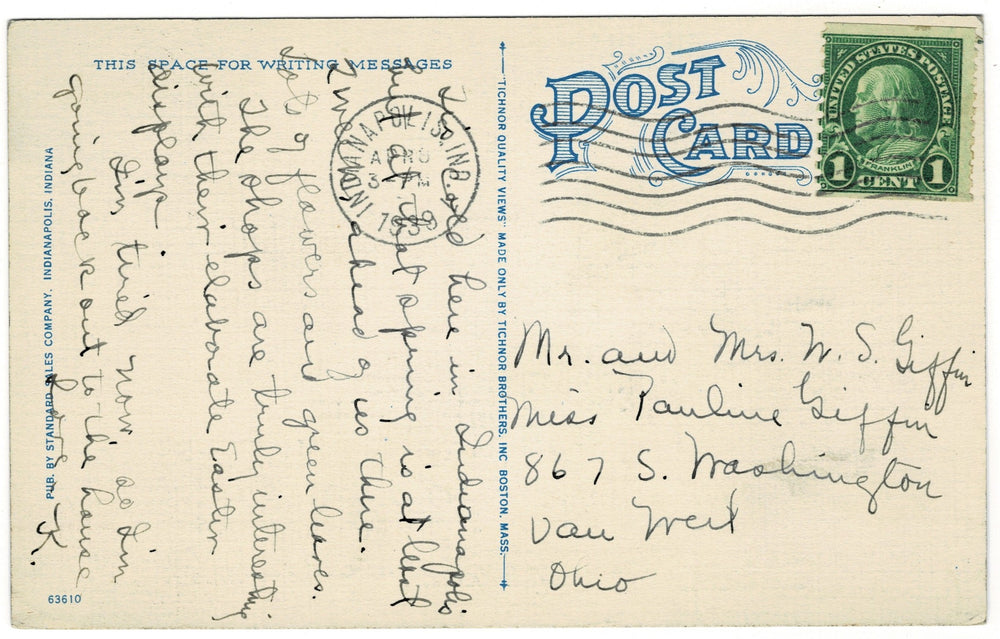 THIS SPACE FOR WRITING MESSAGES
It's cold here in Indianapolis
but that spring is at least
2 wks ahead of us there.
lots of flowers and green leaves.
The shops are truly interesting
with their elaborate Easter
displays.
I'm tired now so I'm
going back out to the house
Love - K.
PUB. BY STANDARD SALES COMPANY, INDIANAPOLIS, INDIANA
63610
"TICHNOR QUALITY VIEWS" MADE ONLY BY TICHNOR BROTHERS, INC BOSTON, MASS.
POST
CARD
INDIANAPOLIS, IND.
APR
3 - PM
1939
UNITED STATES POSTAGE
FRANKLIN
1 CENT 1
Mr. and Mrs. W. S. Giffin
Miss Pauline Giffin
867 S. Washington
Van Wert
Ohio